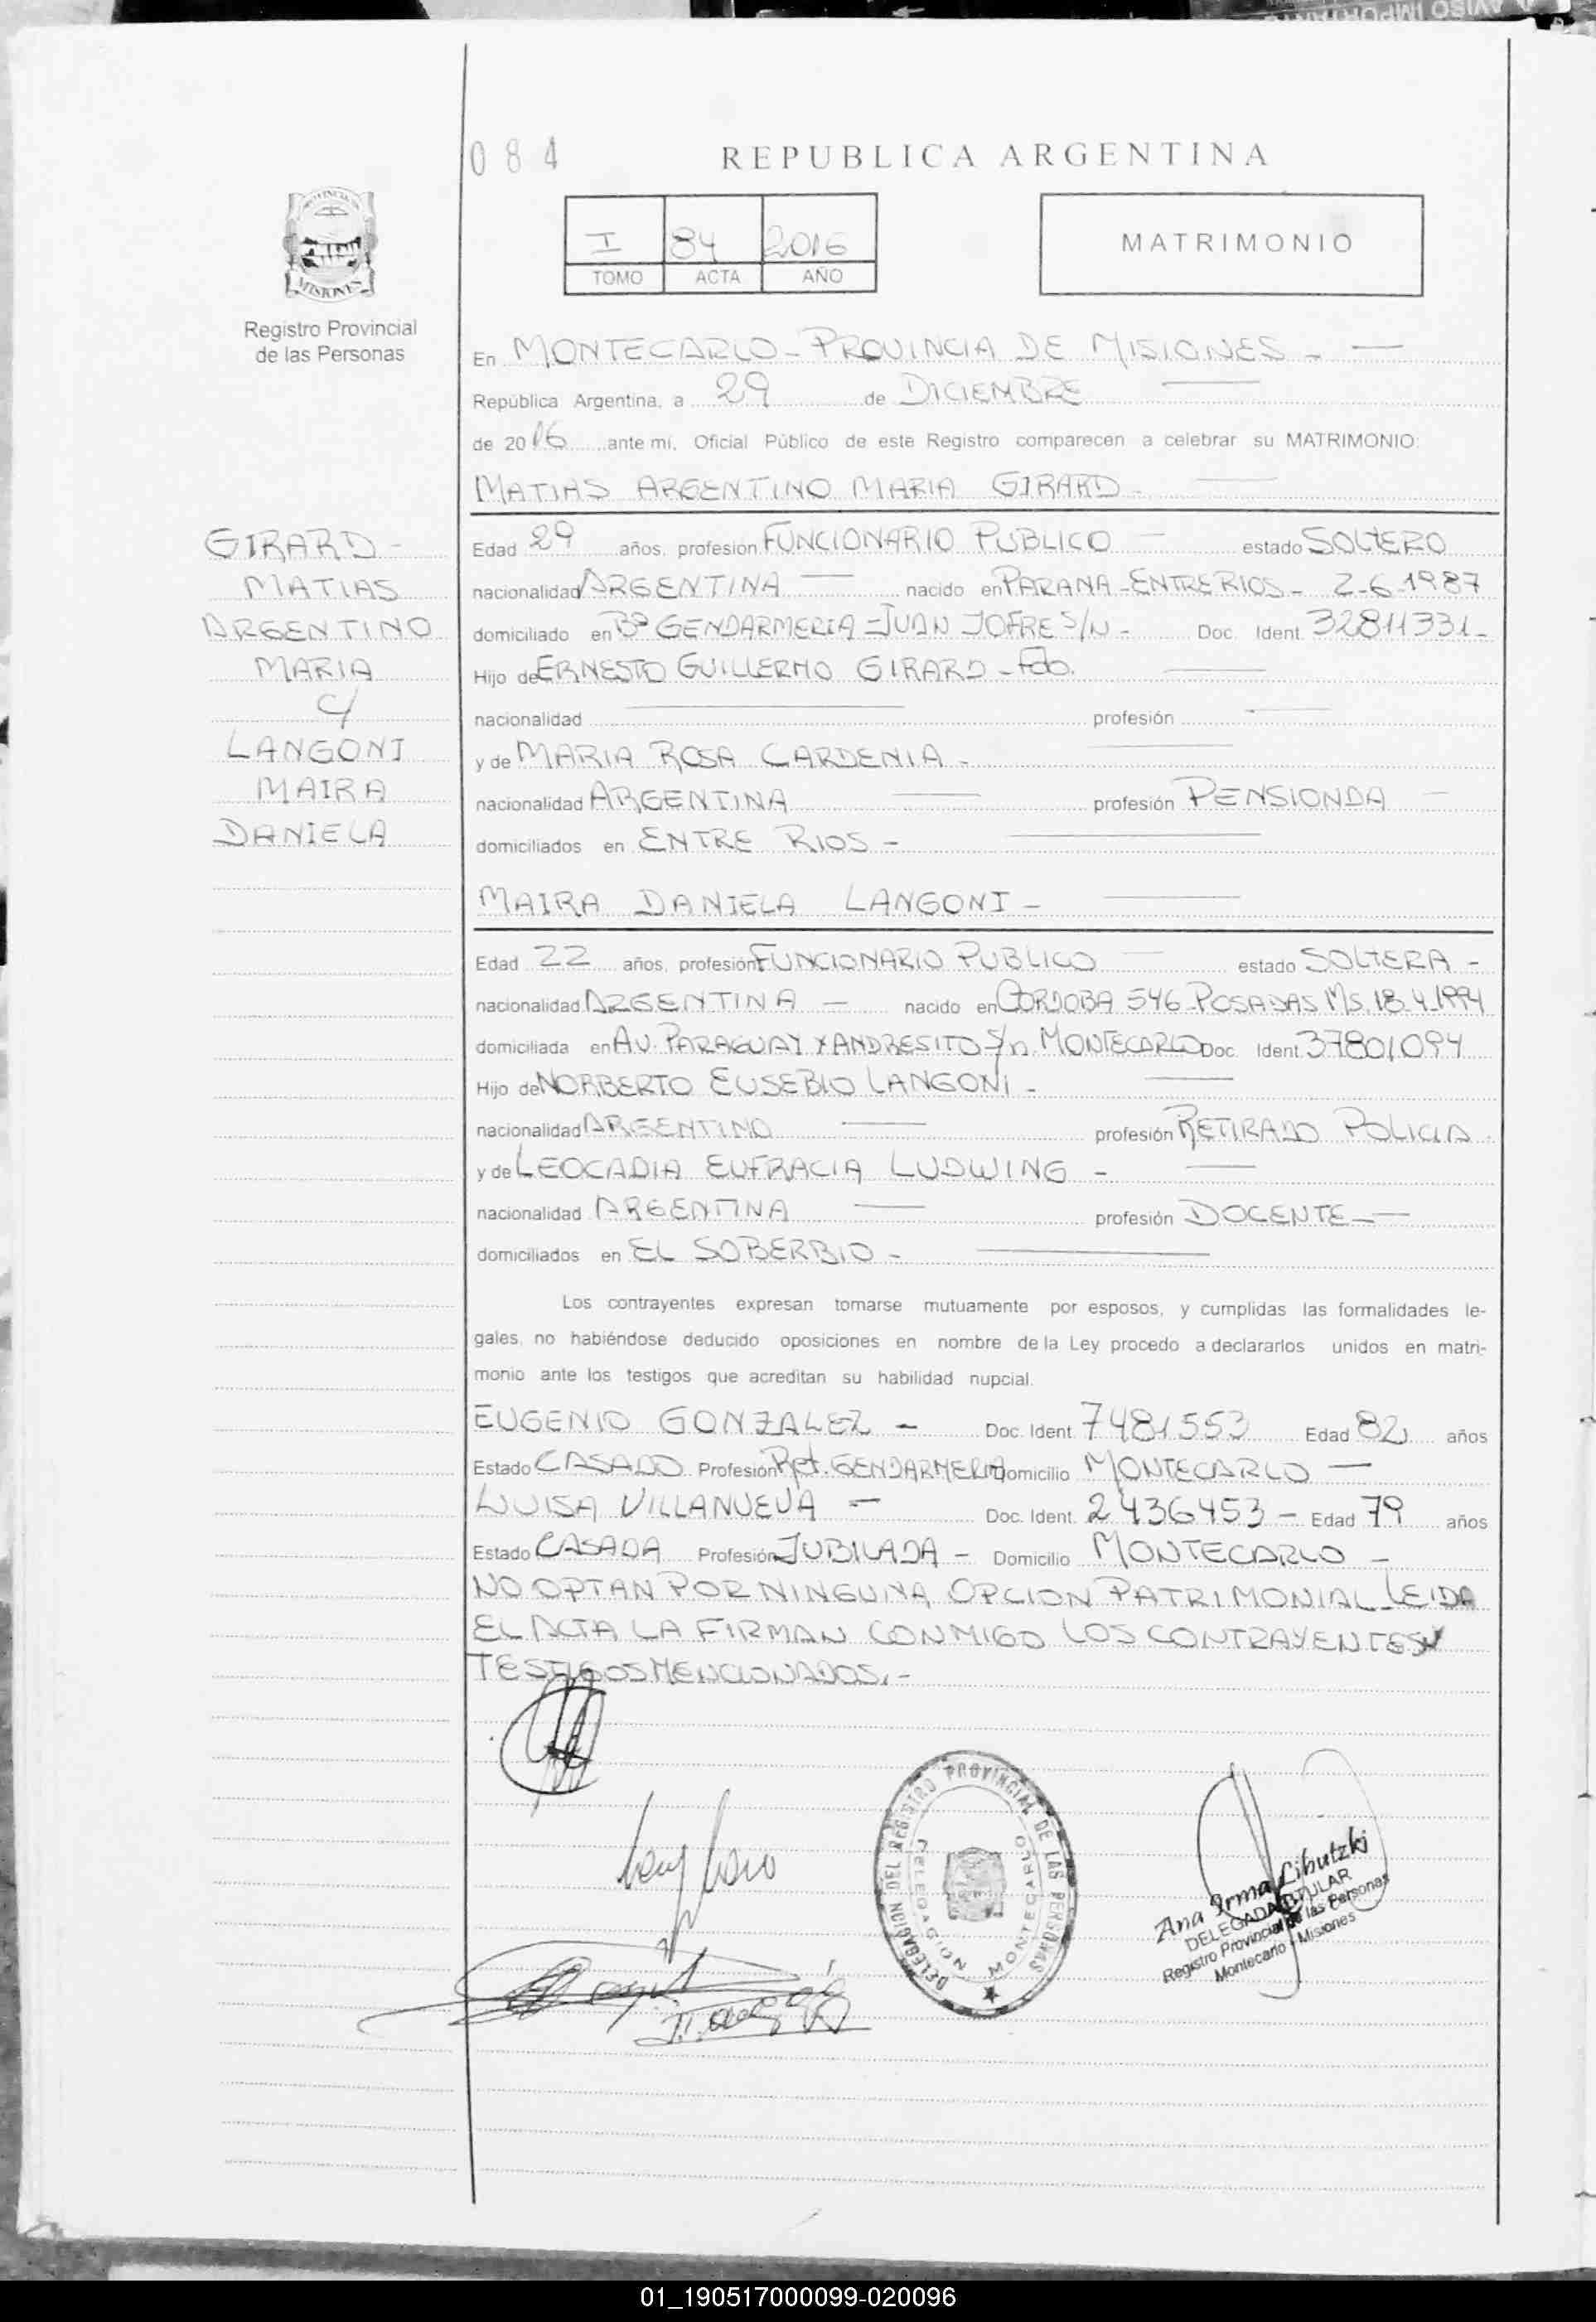 AVISO IMPORTANTE
084
REPUBLICA ARGENTINA
I 84 2016
TOMO ACTA AÑO
MATRIMONIO
MISIONES
Registro Provincial
de las Personas
En MONTECARLO - PROVINCIA DE MISIONES -
República Argentina, a 29 de DICIEMBRE
de 2016 ante mí, Oficial Público de este Registro comparecen a celebrar su MATRIMONIO:
MATIAS ARGENTINO MARIA GIRARD -
GIRARD -
MATIAS
ARGENTINO
MARIA
C/
LANGONI
MAIRA
DANIELA
Edad 29 años, profesión FUNCIONARIO PUBLICO - estado SOLTERO
nacionalidad ARGENTINA nacido en PARANA - ENTRE RIOS - 2-6-1987
domiciliado en Bº GENDARMERIA - JUAN JOFRE S/N - Doc. Ident. 32811331 -
Hijo de ERNESTO GUILLERMO GIRARD - Fdo.
nacionalidad profesión
y de MARIA ROSA CARDENIA -
nacionalidad ARGENTINA profesión PENSIONDA -
domiciliados en ENTRE RIOS -
MAIRA DANIELA LANGONI -
Edad 22 años, profesión FUNCIONARIO PUBLICO estado SOLTERA -
nacionalidad ARGENTINA - nacido en CORDOBA 546 - POSADAS Ms. 18.4.1994
domiciliada en AV. PARAGUAY Y ANDRESITO S/n. MONTECARLO Doc. Ident. 37801094
Hijo de NORBERTO EUSEBIO LANGONI -
nacionalidad ARGENTINO profesión RETIRADO POLICIA -
y de LEOCADIA EUFRACIA LUDWING -
nacionalidad ARGENTINA profesión DOCENTE -
domiciliados en EL SOBERBIO -
Los contrayentes expresan tomarse mutuamente por esposos, y cumplidas las formalidades le-
gales, no habiéndose deducido oposiciones en nombre de la Ley procedo a declararlos unidos en matri-
monio ante los testigos que acreditan su habilidad nupcial.
EUGENIO GONZALEZ - Doc. Ident. 7481553 Edad 82 años
Estado CASADO Profesión Ret. GENDARMERIA Domicilio MONTECARLO -
LUISA VILLANUEVA - Doc. Ident. 2436453 - Edad 79 años
Estado CASADA Profesión JUBILADA - Domicilio MONTECARLO -
NO OPTAN POR NINGUNA OPCION PATRIMONIAL - LEIDA
EL ACTA LA FIRMAN CONMIGO LOS CONTRAYENTES Y
TESTIGOS MENCIONADOS. -
DELEGACION DEL REGISTRO PROVINCIAL DE LAS PERSONAS
DELEGACION MONTECARLO
Ana Irma Libutzki
DELEGADA TITULAR
Registro Provincial de las Personas
Montecarlo - Misiones
01_190517000099-020096